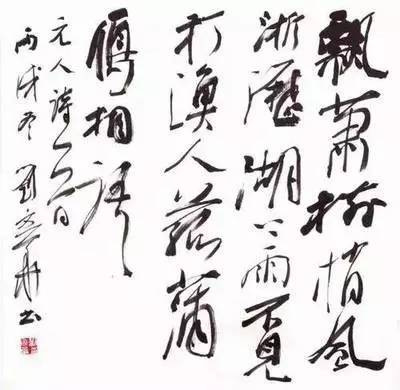 飄蕭樹梢風
淅瀝湖上雨不見
打漁人菰蒲
鴈相語
元人詩一首
丙戌冬 劉 書